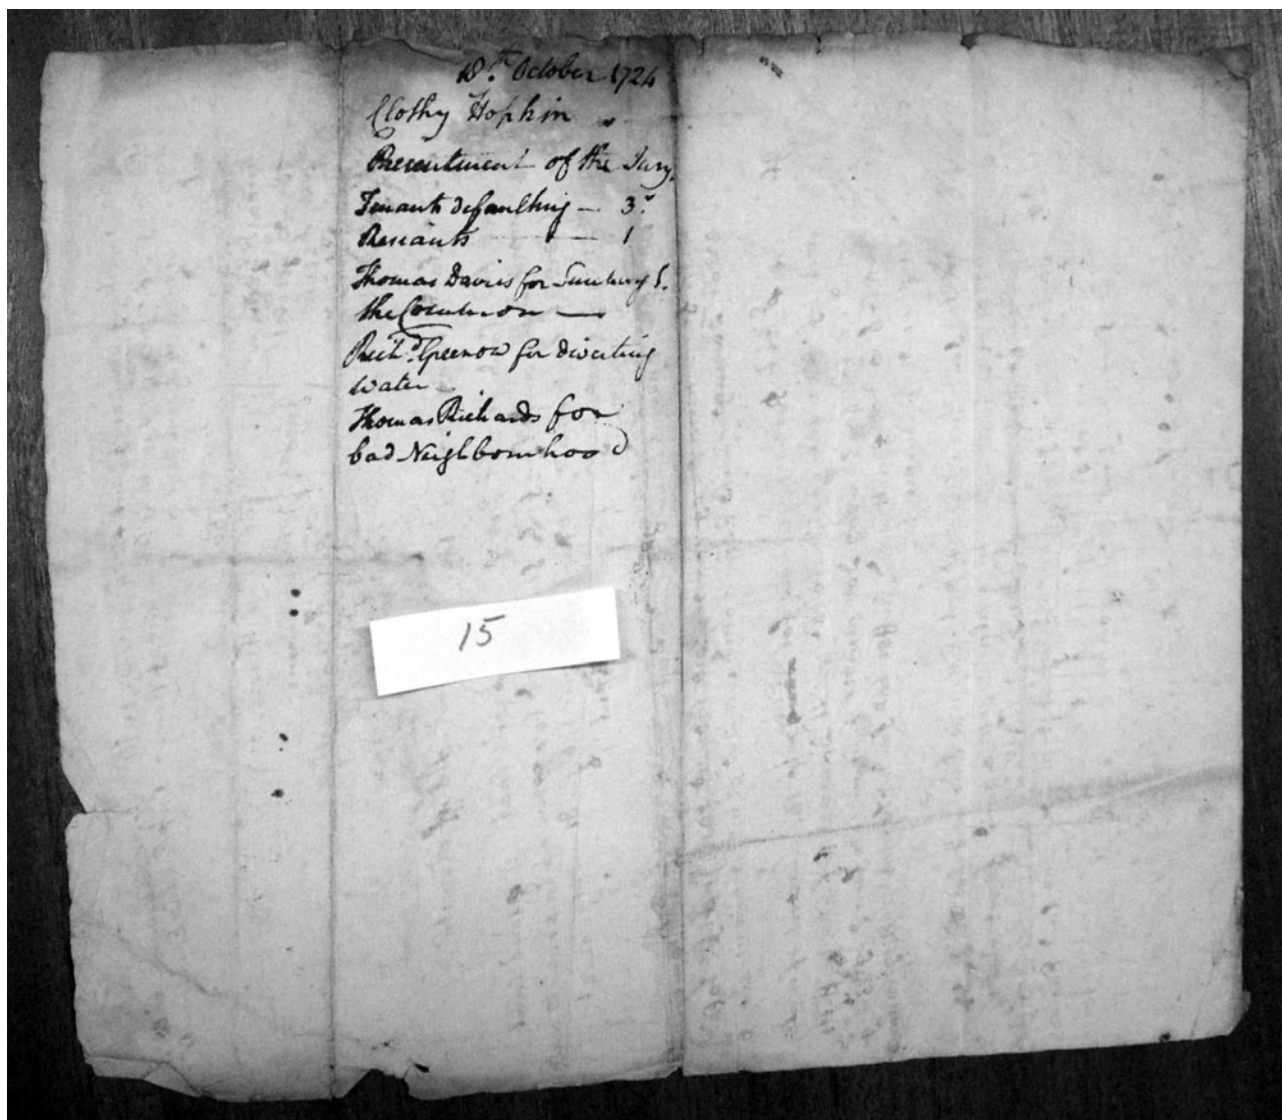 18th. October 1724
Clothy Hopkin
Presentment of the Jury.
Tenants defaulting — 3s.
Resiants — 1
Thomas Davies for
the Common —
Richd. Greenow for diverting
water
Thomas Richards for
bad Neighbourhood
15